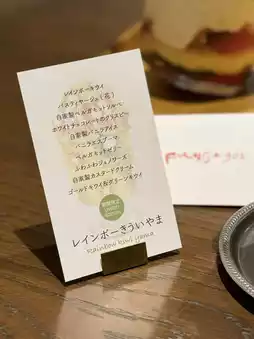 レインボーキウイ
パスティヤージュ(花)
自家製ベルガモットソルベ
ホワイトチョコレートのクリスピー
自家製バニラアイス
バニラエスプーマ
ベルガモットゼリー
ふわふわジェノワーズ
自家製カスタードクリーム
ゴールドキウイ&グリーンキウイ
期間限定
レインボーきうい やま
Rainbow kiwi yama